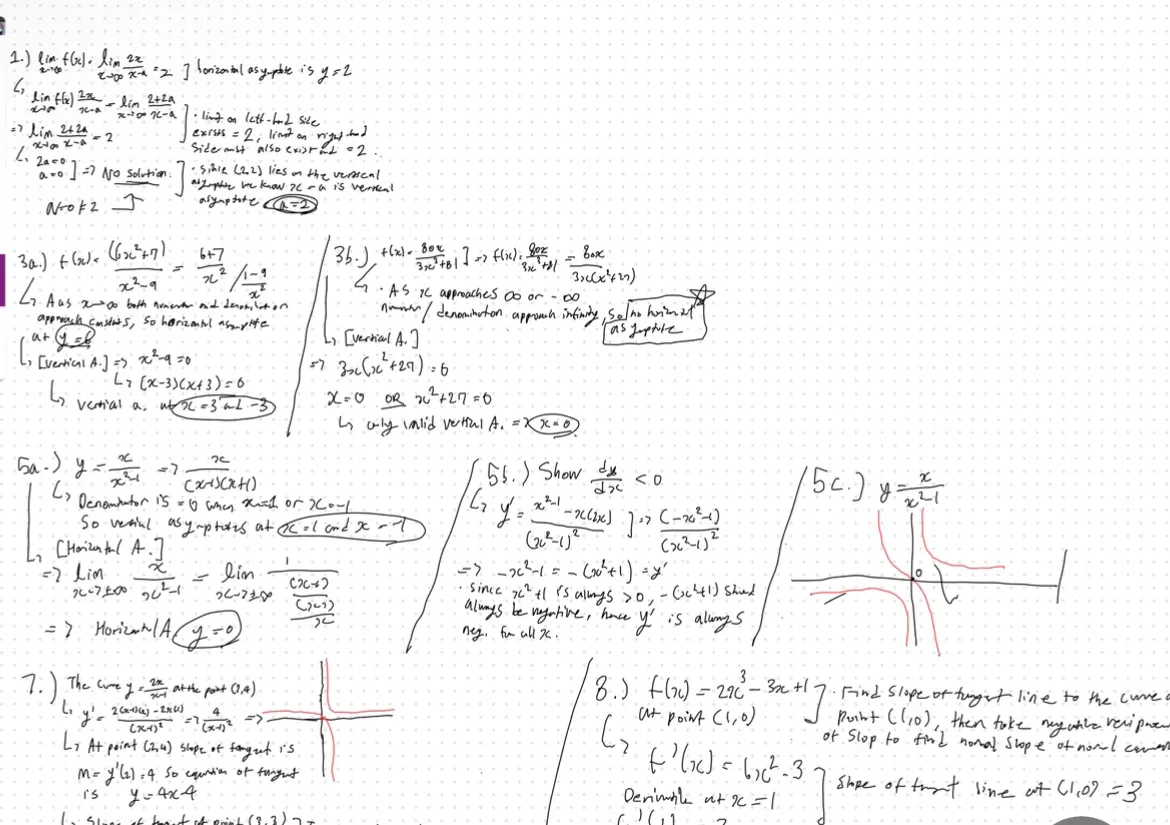 1.) lim f(x) = lim 2x/x-a = 2 ] horizontal asymptote is y = 2
x→∞ x→∞
lim f(x) 2x/x-a = lim 2+2a/x-a
x→∞ x→∞
=> lim 2+2a/x-a = 2
x→∞
• limit on left-hand side
exists = 2, limit on right hand
side must also exist and = 2 ..
2a=0
a=0 ] => No solution.
• since (2,2) lies on the vertical
asymptote we know x = a is vertical
asymptote a=2
3a.) f(x) = (6x²+7)/x²-9 = 6+7/x² / 1-9/x²
↳ As x→∞ both numerator and denominator
approach constants, so horizontal asymptote
at y = 6
↳ [Vertical A.] => x²-9=0
↳ (x-3)(x+3)=0
↳ vertical a. at x = 3 and -3
3b.) f(x) = 80x/3x³+81 ] => f(x) = 80x/3x³+81 = 80x/3x(x²+27)
• As x approaches ∞ or -∞
numerator / denominator approach infinity, so no horizontal
asymptote
↳ [Vertical A.]
=> 3x(x²+27) = 0
x=0 OR x²+27=0
↳ only valid vertical A. => x=0
5a.) y = x/x²-1 => x/(x-1)(x+1)
↳ Denominator is =0 when x=1 or x=-1
So vertical asymptotes at x=1 and x=-1
↳ [Horizontal A.]
=> lim x/x²-1 = lim
x→±∞ x→±∞
=> Horizontal A y=0
5b.) Show dy/dx < 0
↳ y' = x²-1-x(2x)/(x²-1)² ] => (-x²-1)/(x²-1)²
=> -x²-1 = -(x²+1) = y'
• since x²+1 is always >0, -(x²+1) should
always be negative, hence y' is always
neg. for all x.
5c.) y = x/x²-1
0
7.) The curve y = 2x/x-1 at the point
↳ y' = 4/(x-1)² =>
↳ At point (2,4) slope of tangent is
m = y'(2) = 4 so equation of tangent
is y = 4x-4
↳ Slope of tangent at point (3,3)
8.) f(x) = 2x³ - 3x+1
at point (1,0)
• Find slope of tangent line to the curve
point (1,0), then take negative
of slop to find normal slope of normal
f'(x) = 6x²-3
Derivative at x=1
slope of tangent line at (1,0) = 3